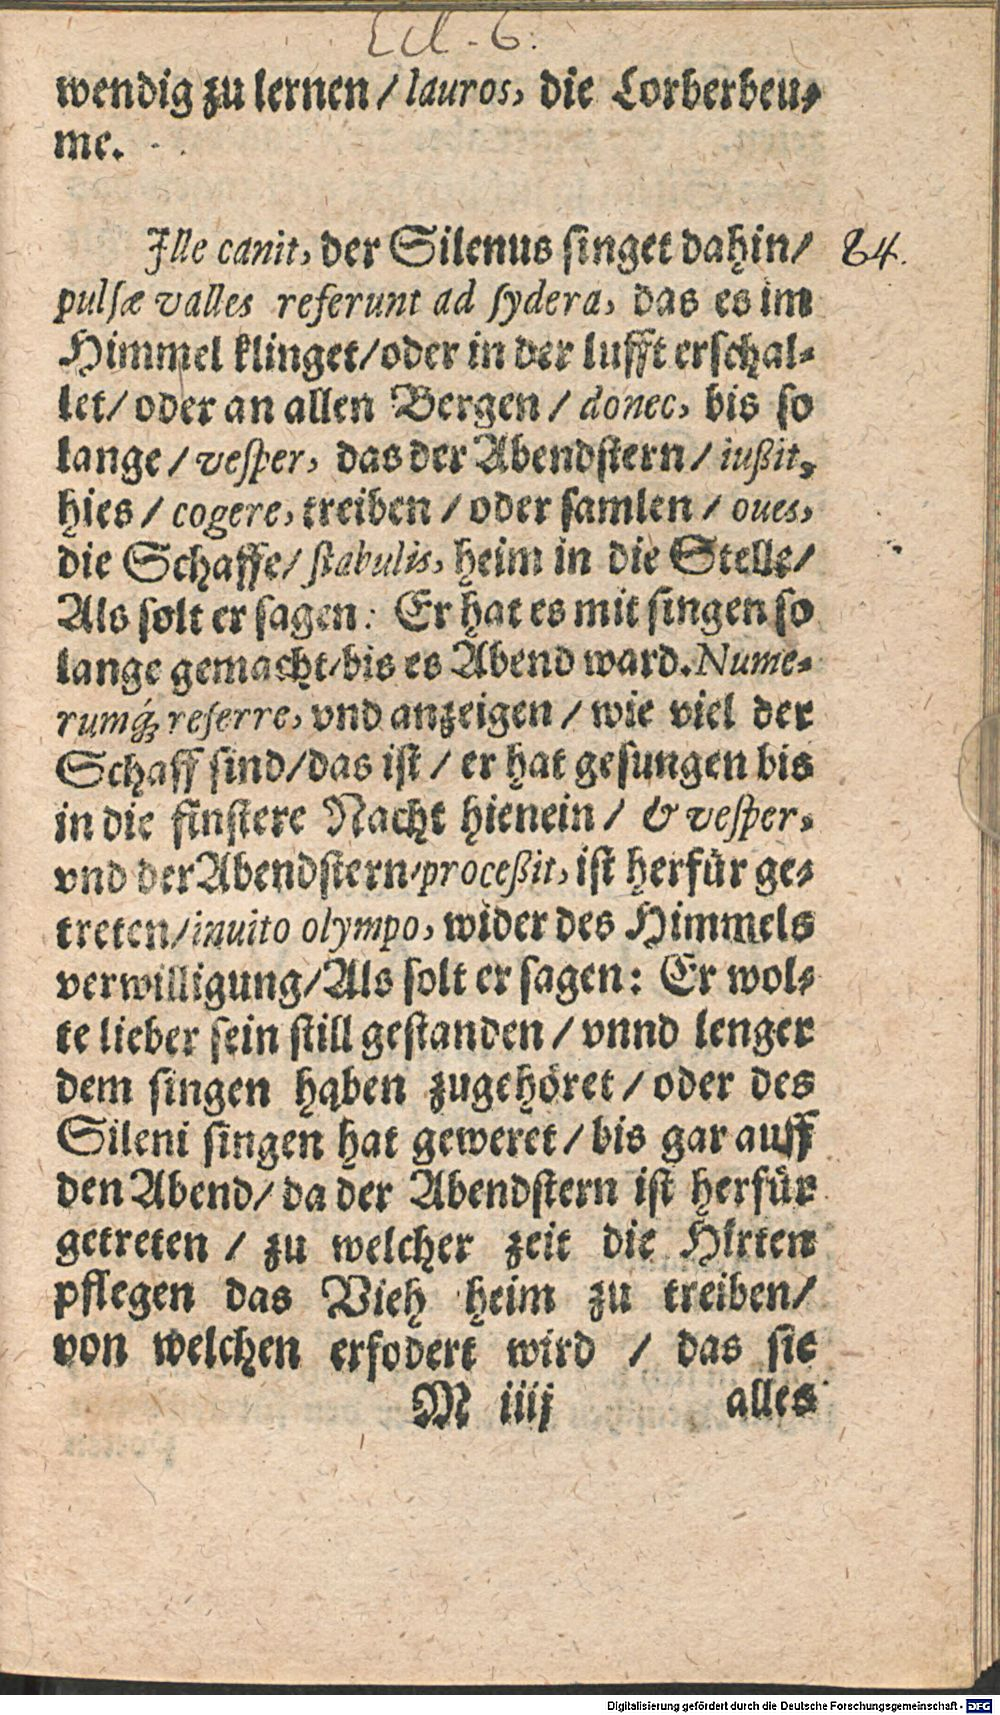 Ecl. 6.
wendig zu lernen / lauros, die Lorberbeu-
me.
Ille canit, der Silenus singet dahin/ 84.
pulsæ valles referunt ad sydera, das es im
Himmel klinget/oder in der lufft erschal-
let/ oder an allen Bergen / donec, bis so
lange / vesper, das der Abendstern / iußit,
hies / cogere, treiben / oder samlen / oues,
die Schaffe/ stabulis, heim in die Stelle/
Als solt er sagen: Er hat es mit singen so
lange gemacht/bis es Abend ward. Nume-
rumq́; referre, vnd anzeigen / wie viel der
Schaff sind/das ist / er hat gesungen bis
in die finstere Nacht hienein / & vesper,
vnd der Abendstern/proceßit, ist herfür ge-
treten/inuito olympo, wider des Himmels
verwilligung/Als solt er sagen: Er wol-
te lieber sein still gestanden / vnnd lenger
dem singen haben zugehöret / oder des
Sileni singen hat geweret / bis gar auff
den Abend/ da der Abendstern ist herfür
getreten / zu welcher zeit die Hirten
pflegen das Vieh heim zu treiben/
von welchen erfodert wird / das sie
M iiij alles
Digitalisierung gefördert durch die Deutsche Forschungsgemeinschaft - DFG